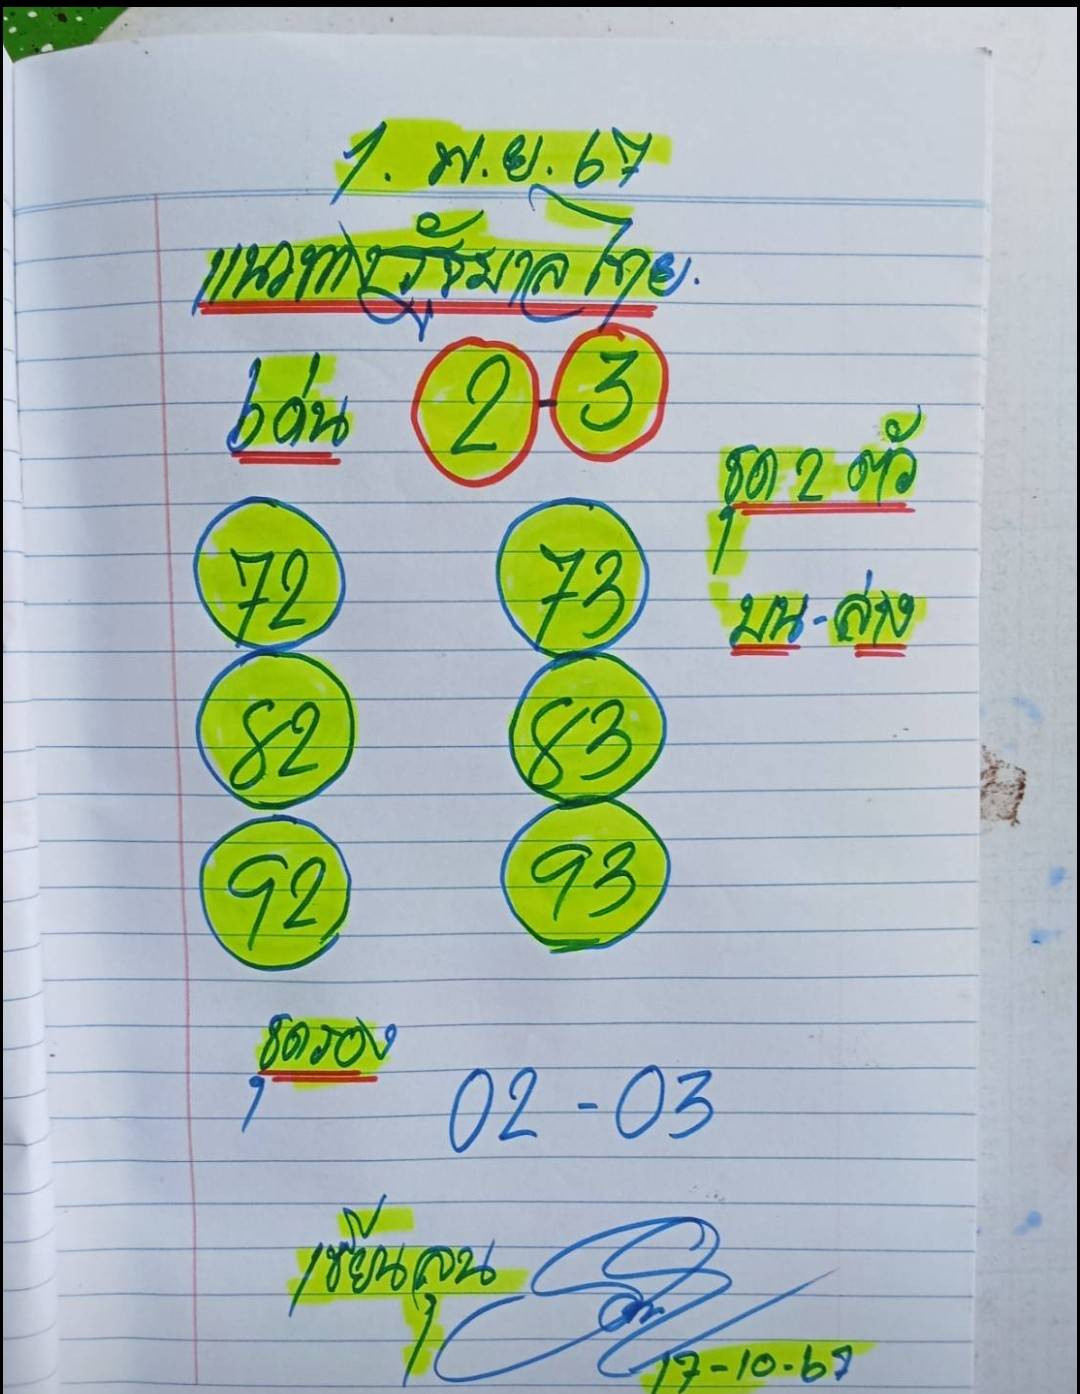 1. พ.ย. 67
แนวทางรัฐบาลไทย.
เด่น 2-3
ชุด 2 ตัว
บน-ล่าง
72 73
82 83
92 93
ชุดรอง
02-03
เซียนลุน
17-10-67